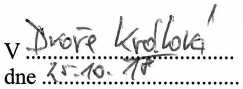 V Dvoře Králové
dne 25.10.18